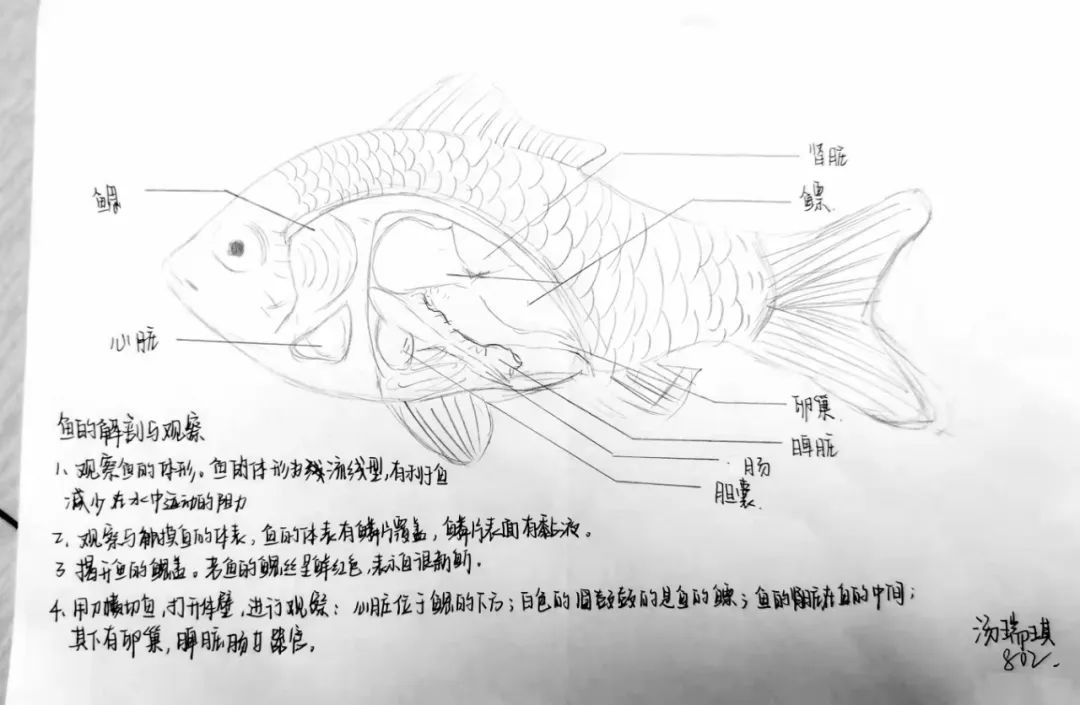 肾脏
鳃
鳔
心脏
卵巢
脾脏
肠
胆囊
鱼的解剖与观察
1、观察鱼的体形。鱼的体形为流线型,有利于鱼
减少在水中运动的阻力
2、观察与触摸鱼的体表,鱼的体表有鳞片覆盖,鳞片表面有黏液。
3 揭开鱼的鳃盖。若鱼的鳃丝呈鲜红色,表示鱼很新鲜。
4、用刀切鱼,打开体壁,进行观察:心脏位于鳃的下方;白色的圆鼓鼓的是鱼的鳔;鱼的肾脏在鱼的中间;
其下有卵巢,脾脏肠胆囊。
汤瑞琪
802.